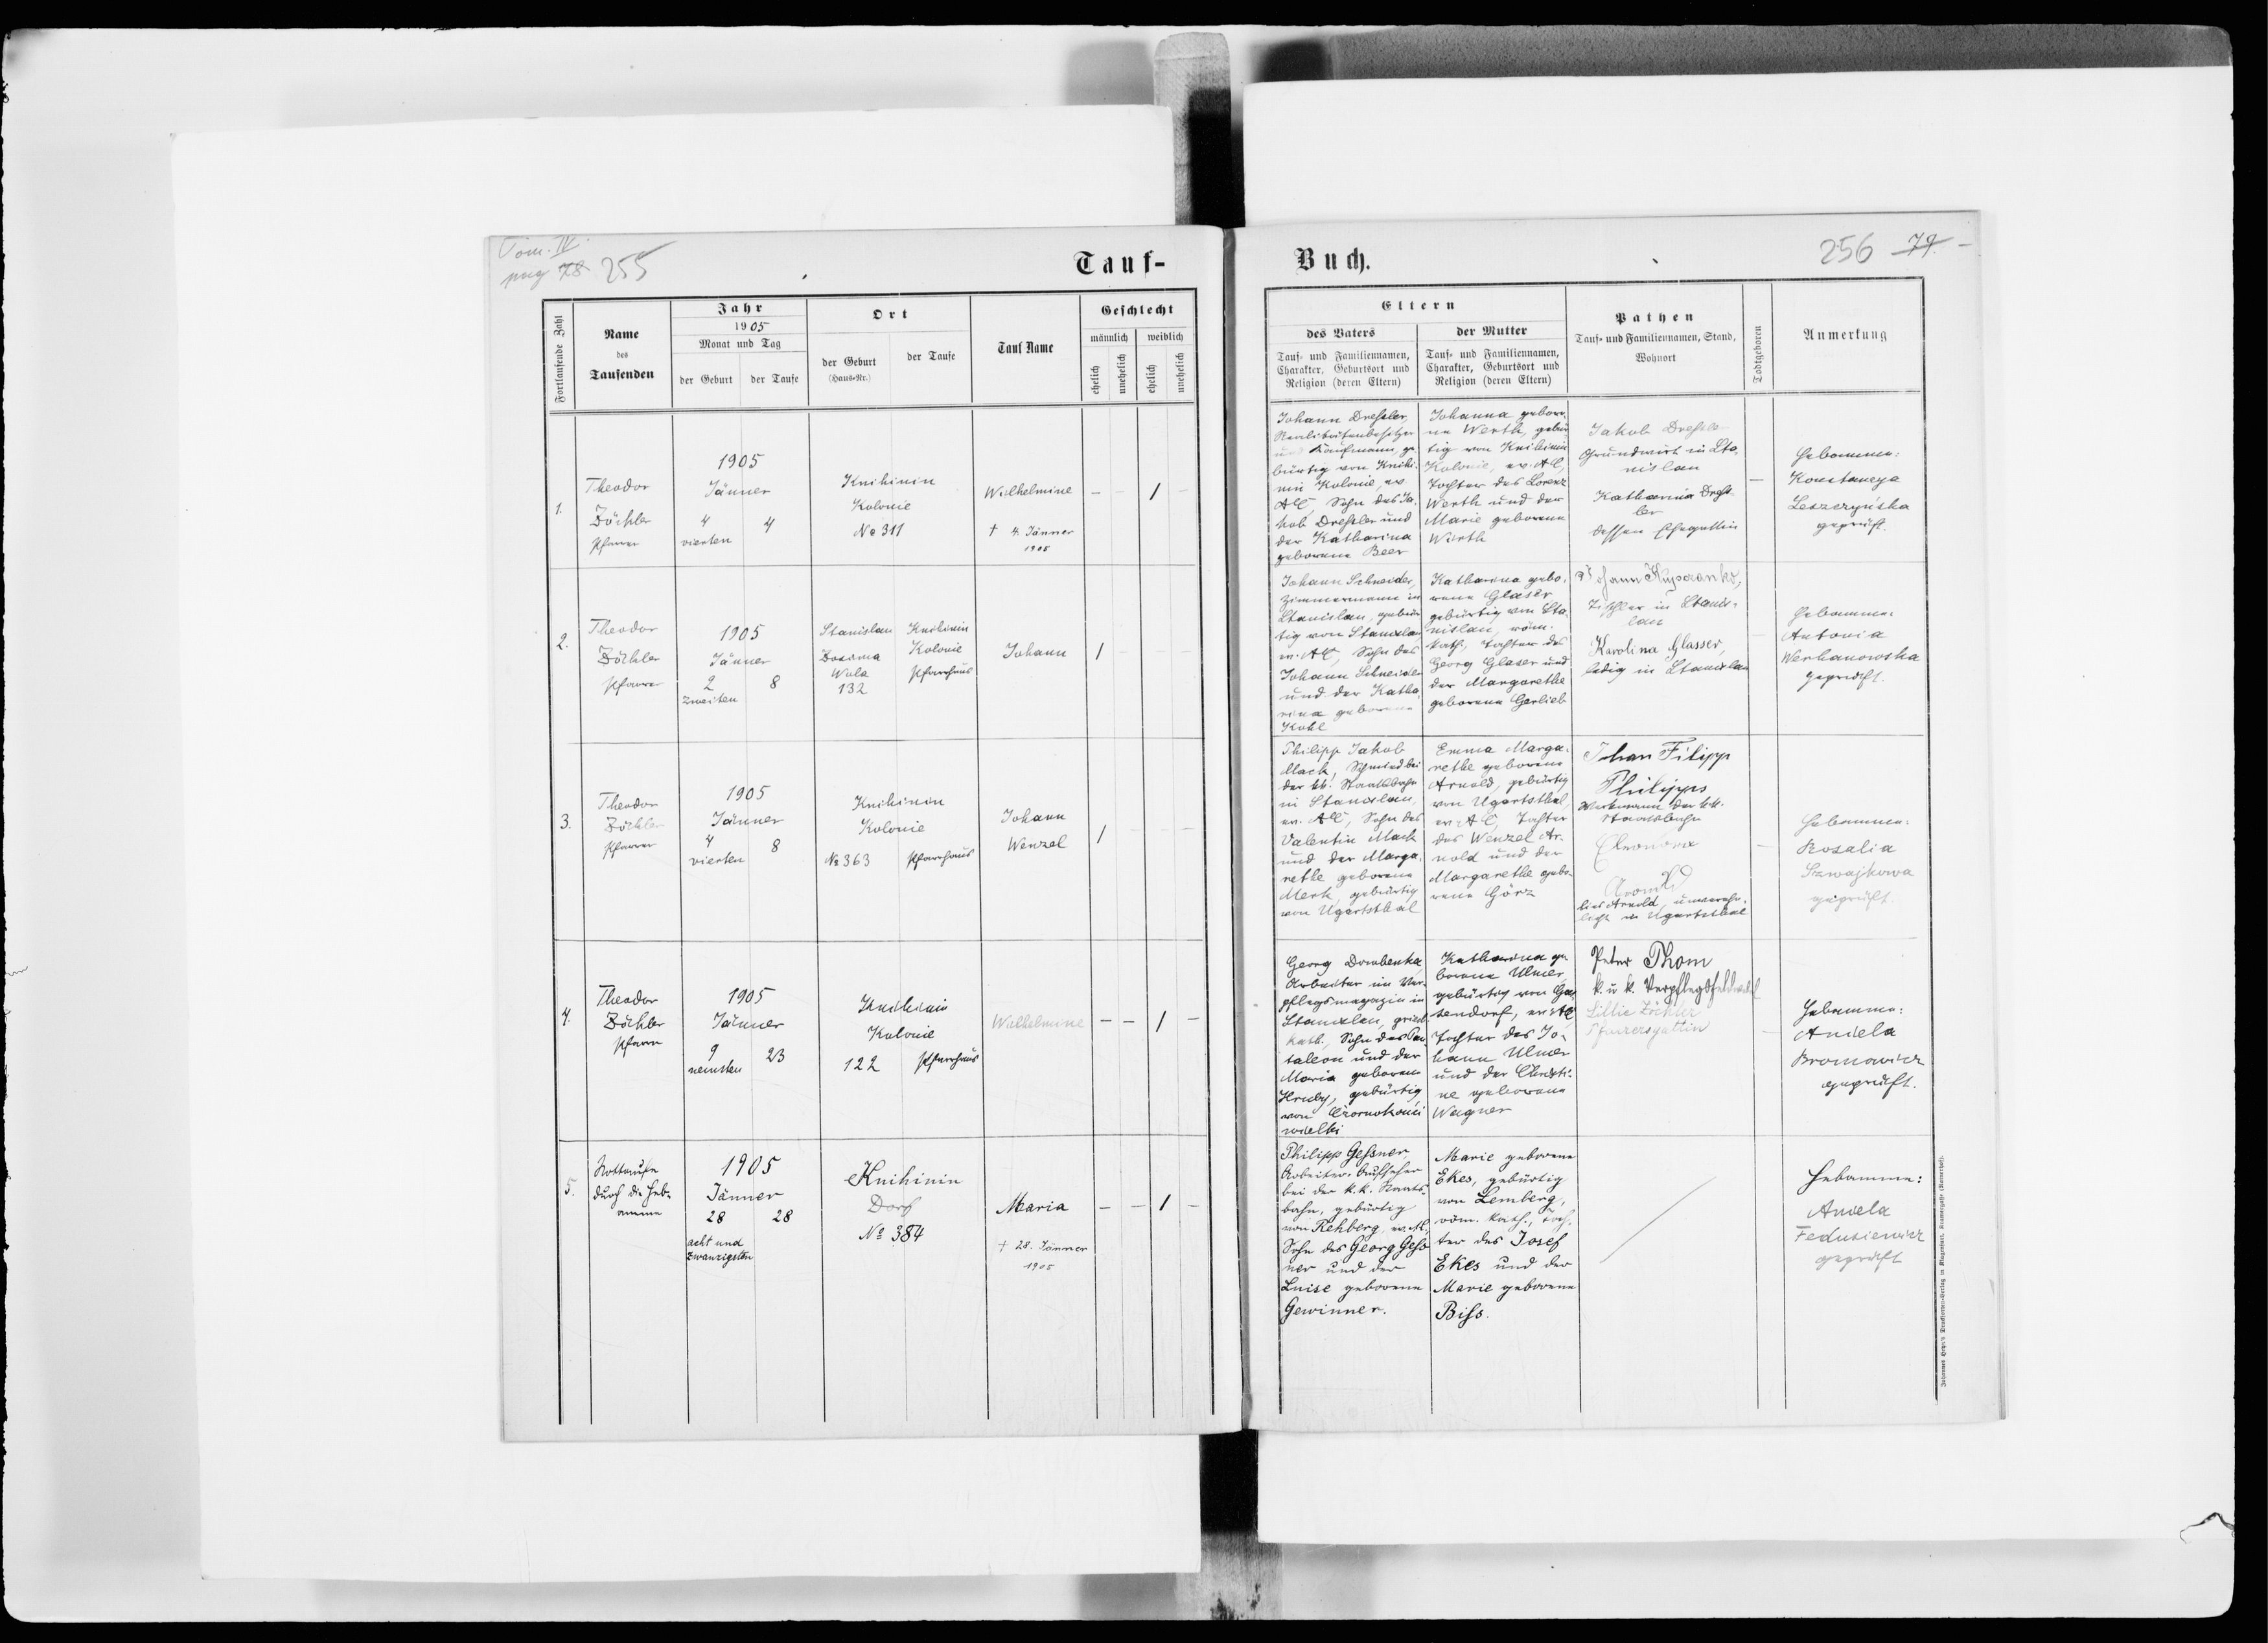 Tom. IV.
pag 78 255
Tauf-
Fortlaufende Zahl
Name
des
Taufenden
Jahr
1905
Monat und Tag
der Geburt
der Taufe
Ort
der Geburt
(Haus-Nr.)
der Taufe
Tauf Name
Geschlecht
männlich
weiblich
ehelich
unehelich
ehelich
unehelich
1.
Theodor
Zöckler
Pfarrer
1905
Jänner
4 4
vierten
Knihinin
Kolonie
No 311
Wilhelmine
† 4. Jänner
1905
– – 1 –
2.
Theodor
Zöckler
Pfarrer
1905
Jänner
2 8
zweiten
Stanislau
Wola
132
Knihinin
Kolonie
Pfarrhaus
Johann
1 – – –
3.
Theodor
Zöckler
Pfarrer
1905
Jänner
4 8
vierten
Knihinin
Kolonie
No 363 Pfarrhaus
Johann
Wenzel
1 – – –
4.
Theodor
Zöckler
Pfarrer
1905
Jänner
9 23
neunten
Knihinin
Kolonie
122 Pfarrhaus
Wilhelmine
– – 1 –
5.
Nottaufe
durch die Heb-
amme
1905
Jänner
28 28
acht und
zwanzigsten
Knihinin
Dorf
No 384
Maria
† 28. Jänner
1905
– – 1 –
Buch.
256 79 –
Eltern
des Vaters
Tauf- und Familiennamen,
Charakter, Geburtsort und
Religion (deren Eltern)
der Mutter
Tauf- und Familiennamen,
Charakter, Geburtsort und
Religion (deren Eltern)
Pathen
Tauf- und Familiennamen, Stand,
Wohnort
Todtgeboren
Anmerkung
Johann Dreßler,
Realitätenbesitzer
und Kaufmann, ge-
bürtig von Knihi-
nin Kolonie, ev.
AC, Sohn des Ja-
kob Dreßler und
der Katharina
geborene Beer
Johanna gebore-
ne Werth, gebür-
tig von Knihinin
Kolonie, ev. AC,
Tochter des Lorenz
Werth und der
Marie geborene
Wirth
Jakob Dreßler
Grundwirt in Sta-
nislau
Katharina Dreß-
ler
dessen Ehegattin
–
Hebamme:
Konstancya
Leszczyńska
geprüft.
Johann Schneider,
Zimmermann in
Stanislau, gebür-
tig von Stanislau
ev. AC, Sohn des
Johann Schneider
und der Katha-
rina geborene
Kohl
Katharina gebo-
rene Glaser
gebürtig von Sta-
nislau, röm.
kath., Tochter des
Georg Glaser und
der Margarethe
geborene Gerlieb
Johann
Tischler in Stanis-
lau
Karolina Glasser,
ledig in Stanislau
Hebamme:
Antonia
Werhanowska
geprüft.
Philipp Jakob
Mack, Schmied bei
der kk. Staatsbahn
in Stanislau,
ev. AC, Sohn des
Valentin Mack
und der Marga-
rethe geborene
Merk, gebürtig
von Ugartsthal
Emma Marga-
rethe geborene
Arnold, gebürtig
von Ugartsthal,
ev. AC, Tochter
des Wenzel Ar-
nold und der
Margarethe gebo-
rene Görz
Johan Filipp
Philipps
Werkmann der kk.
Staatsbahn
Eleonora
Arnold, unverehe-
licht in Ugartsthal
–
Hebamme:
Rosalia
Szwajkowa
geprüft.
Georg Dombenka,
Arbeiter im Ver-
pflegsmagazin in
Stanislau, griech.
kath., Sohn des Pan-
taleon und der
Maria geborene
Hruby, gebürtig
von Czornokońce
wielki
Katharina ge-
borene Ulmer
gebürtig von
ev. AC,
Tochter des Jo-
hann Ulmer
und der Christi-
ne geborene
Wagner
Peter Thom
k. u. k.
Lillie Zöckler
Pfarrersgattin
–
Hebamme:
Aniela
Bromowicz
geprüft.
Philipp Geßner,
Arbeiter-Aufseher
bei der k.k. Staats-
bahn, gebürtig
von Rehberg, ev. AC,
Sohn des Georg Geß-
ner und der
Luise geborene
Gewinner.
Marie geborene
Ekes, gebürtig
von Lemberg,
röm. kath., Toch-
ter des Josef
Ekes und der
Marie geborene
Biss.
Hebamme:
Aniela
Fedusiewicz
geprüft